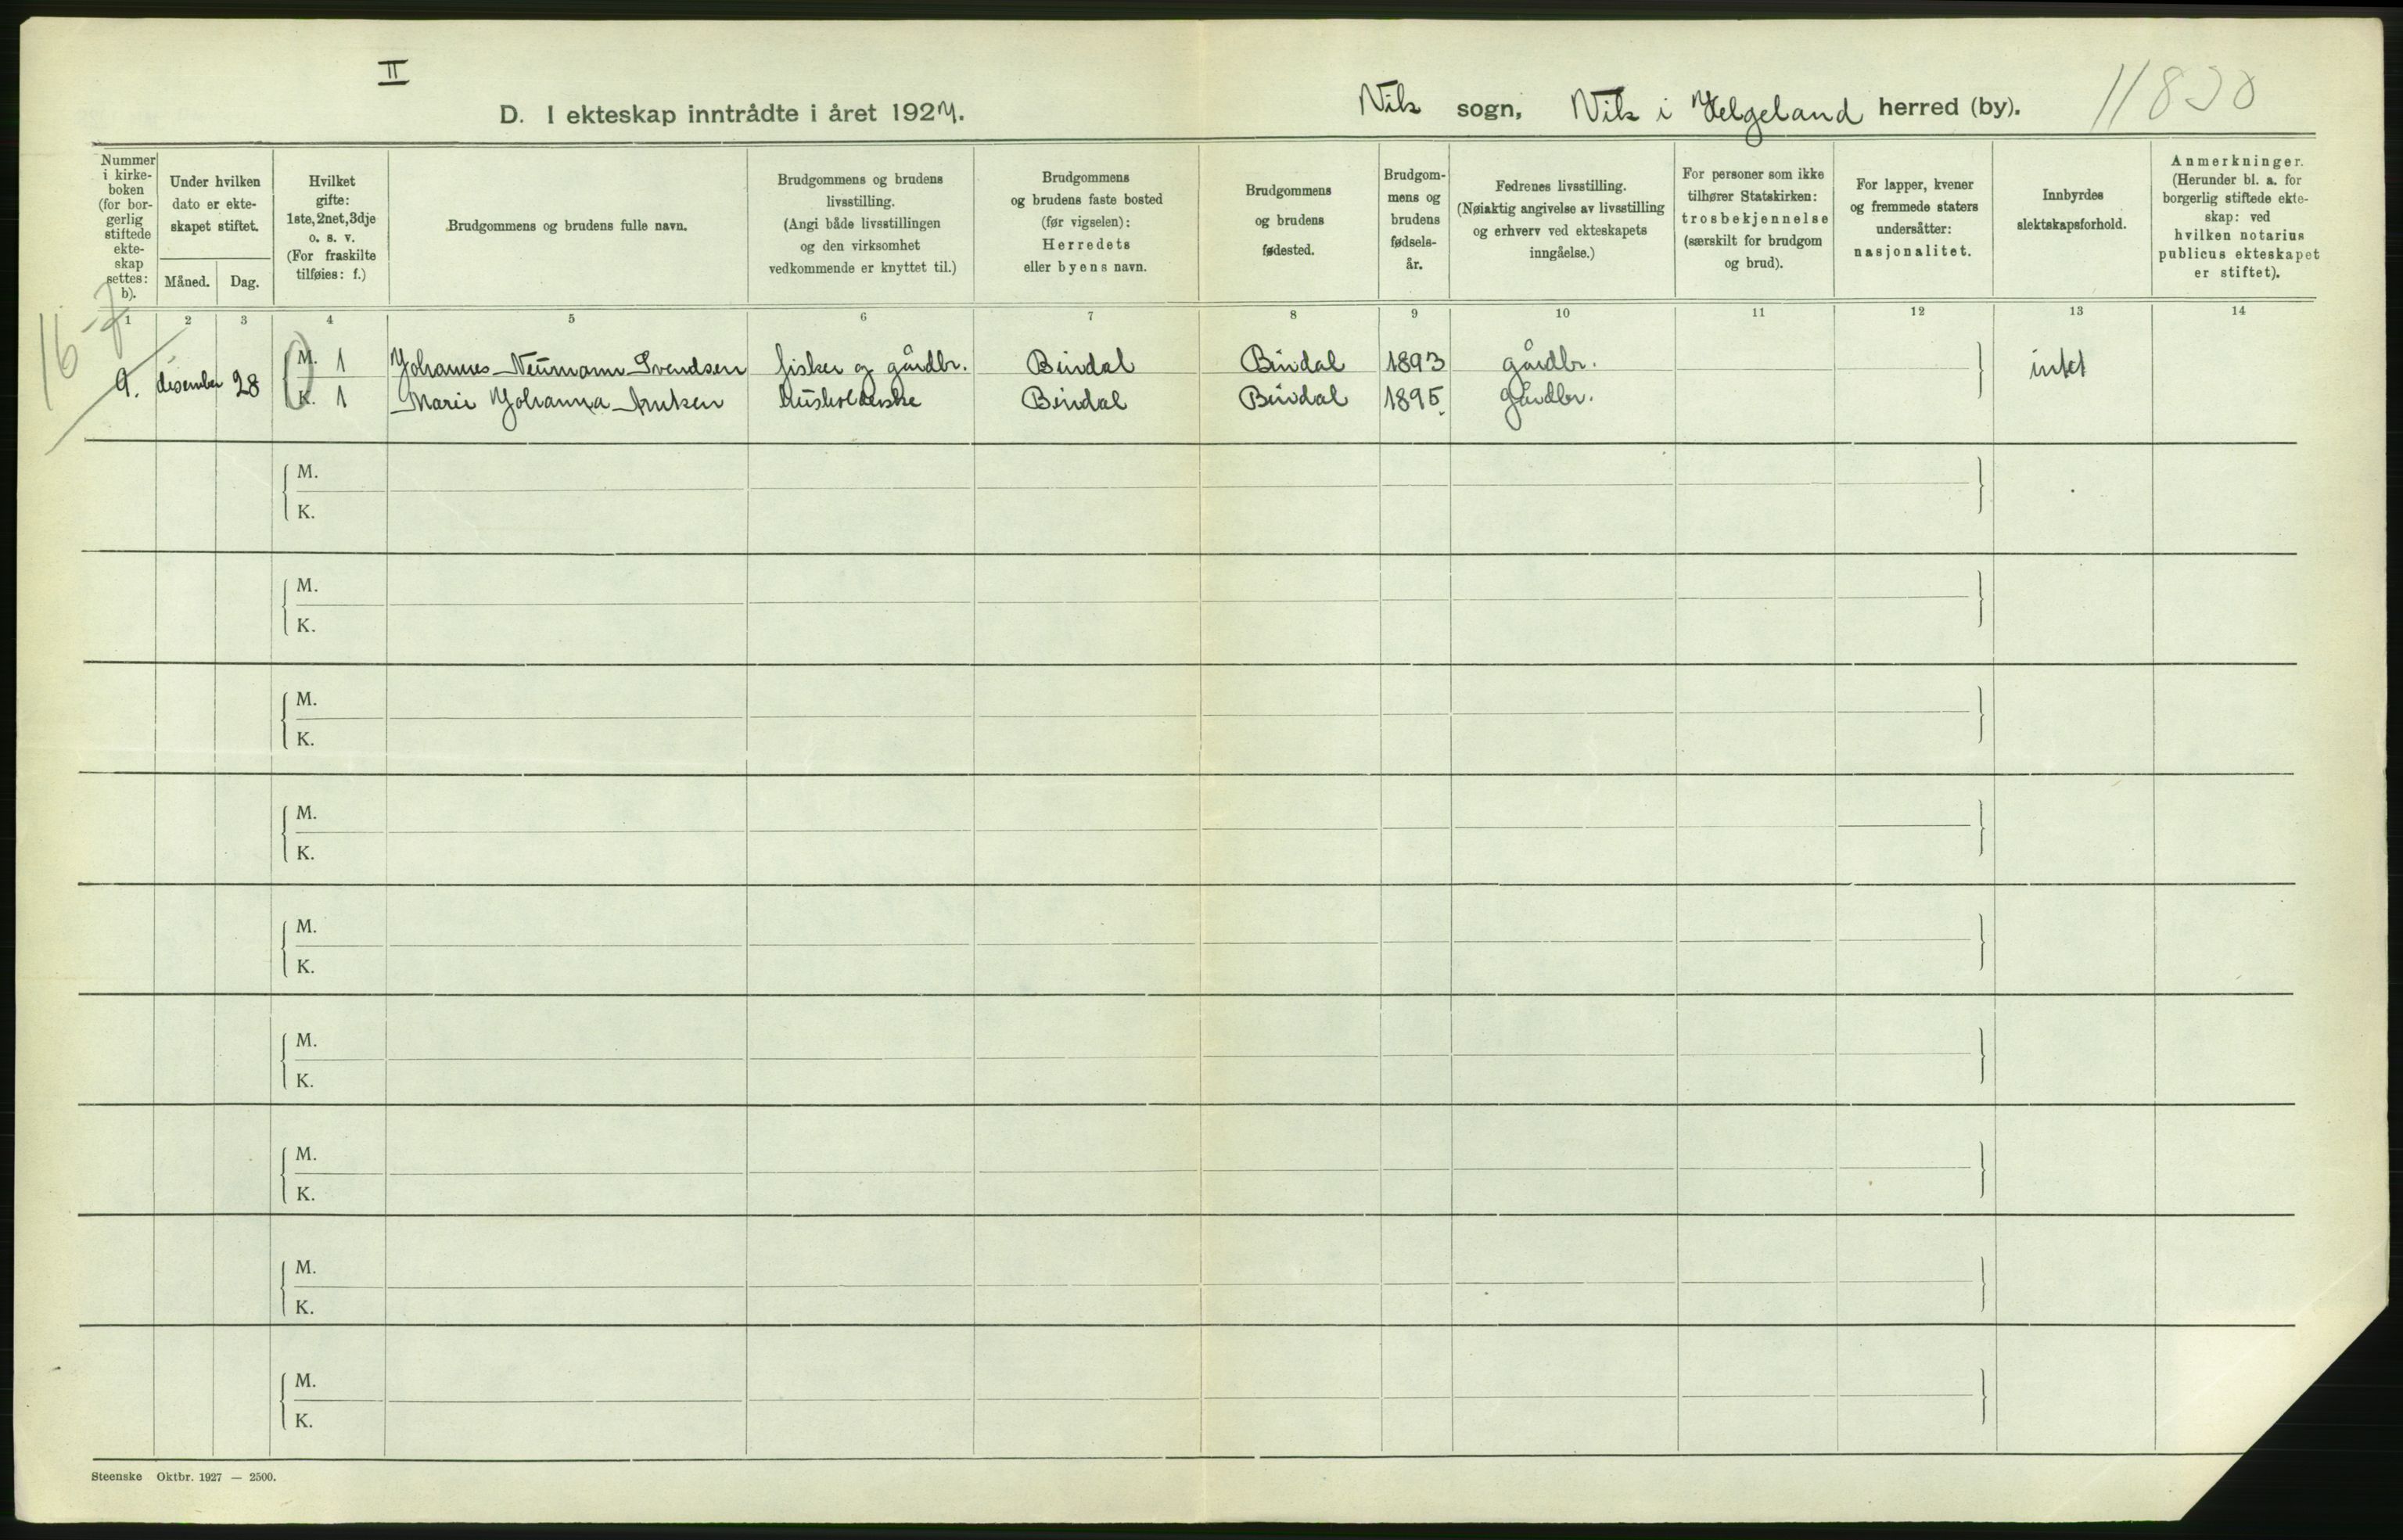 II
D. I ekteskap inntrådte i året 1927.
Vik sogn, Vik i Helgeland herred (by).
11830
Nummer
i kirke-
boken
(for bor-
gerlig
stiftede
ekte-
skap
settes:
b).
Under hvilken
dato er ekte-
skapet stiftet.
Måned.
Dag.
Hvilket
gifte:
1ste, 2net, 3dje
o. s. v.
(For fraskilte
tilføies: f.)
Brudgommens og brudens fulle navn.
Brudgommens og brudens
livsstilling.
(Angi både livsstillingen
og den virksomhet
vedkommende er knyttet til.)
Brudgommens
og brudens faste bosted
(før vigselen):
Herredets
eller byens navn.
Brudgommens
og brudens
fødested.
Brudgom-
mens og
brudens
fødsels-
år.
Fedrenes livsstilling.
(Nøiaktig angivelse av livsstilling
og erhverv ved ekteskapets
inngåelse.)
For personer som ikke
tilhører Statskirken:
trosbekjennelse
(særskilt for brudgom
og brud).
For lapper, kvener
og fremmede staters
undersåtter:
nasjonalitet.
Innbyrdes
slektskapsforhold.
Anmerkninger.
(Herunder bl. a. for
borgerlig stiftede ekte-
skap: ved
hvilken notarius
publicus ekteskapet
er stiftet).
1 2 3 4 5 6 7 8 9 10 11 12 13 14
16-7
9. desember 28
M. 1 Johannes Neumann Svendsen fisker og gårdbr. Bindal Bindal 1893 gårdbr. intet
K. 1 Marie Johanna husholderske Bindal Bindal 1895 gårdbr.
M.
K.
M.
K.
M.
K.
M.
K.
M.
K.
M.
K.
M.
K.
M.
K.
M.
K.
Steenske Oktbr. 1927 — 2500.